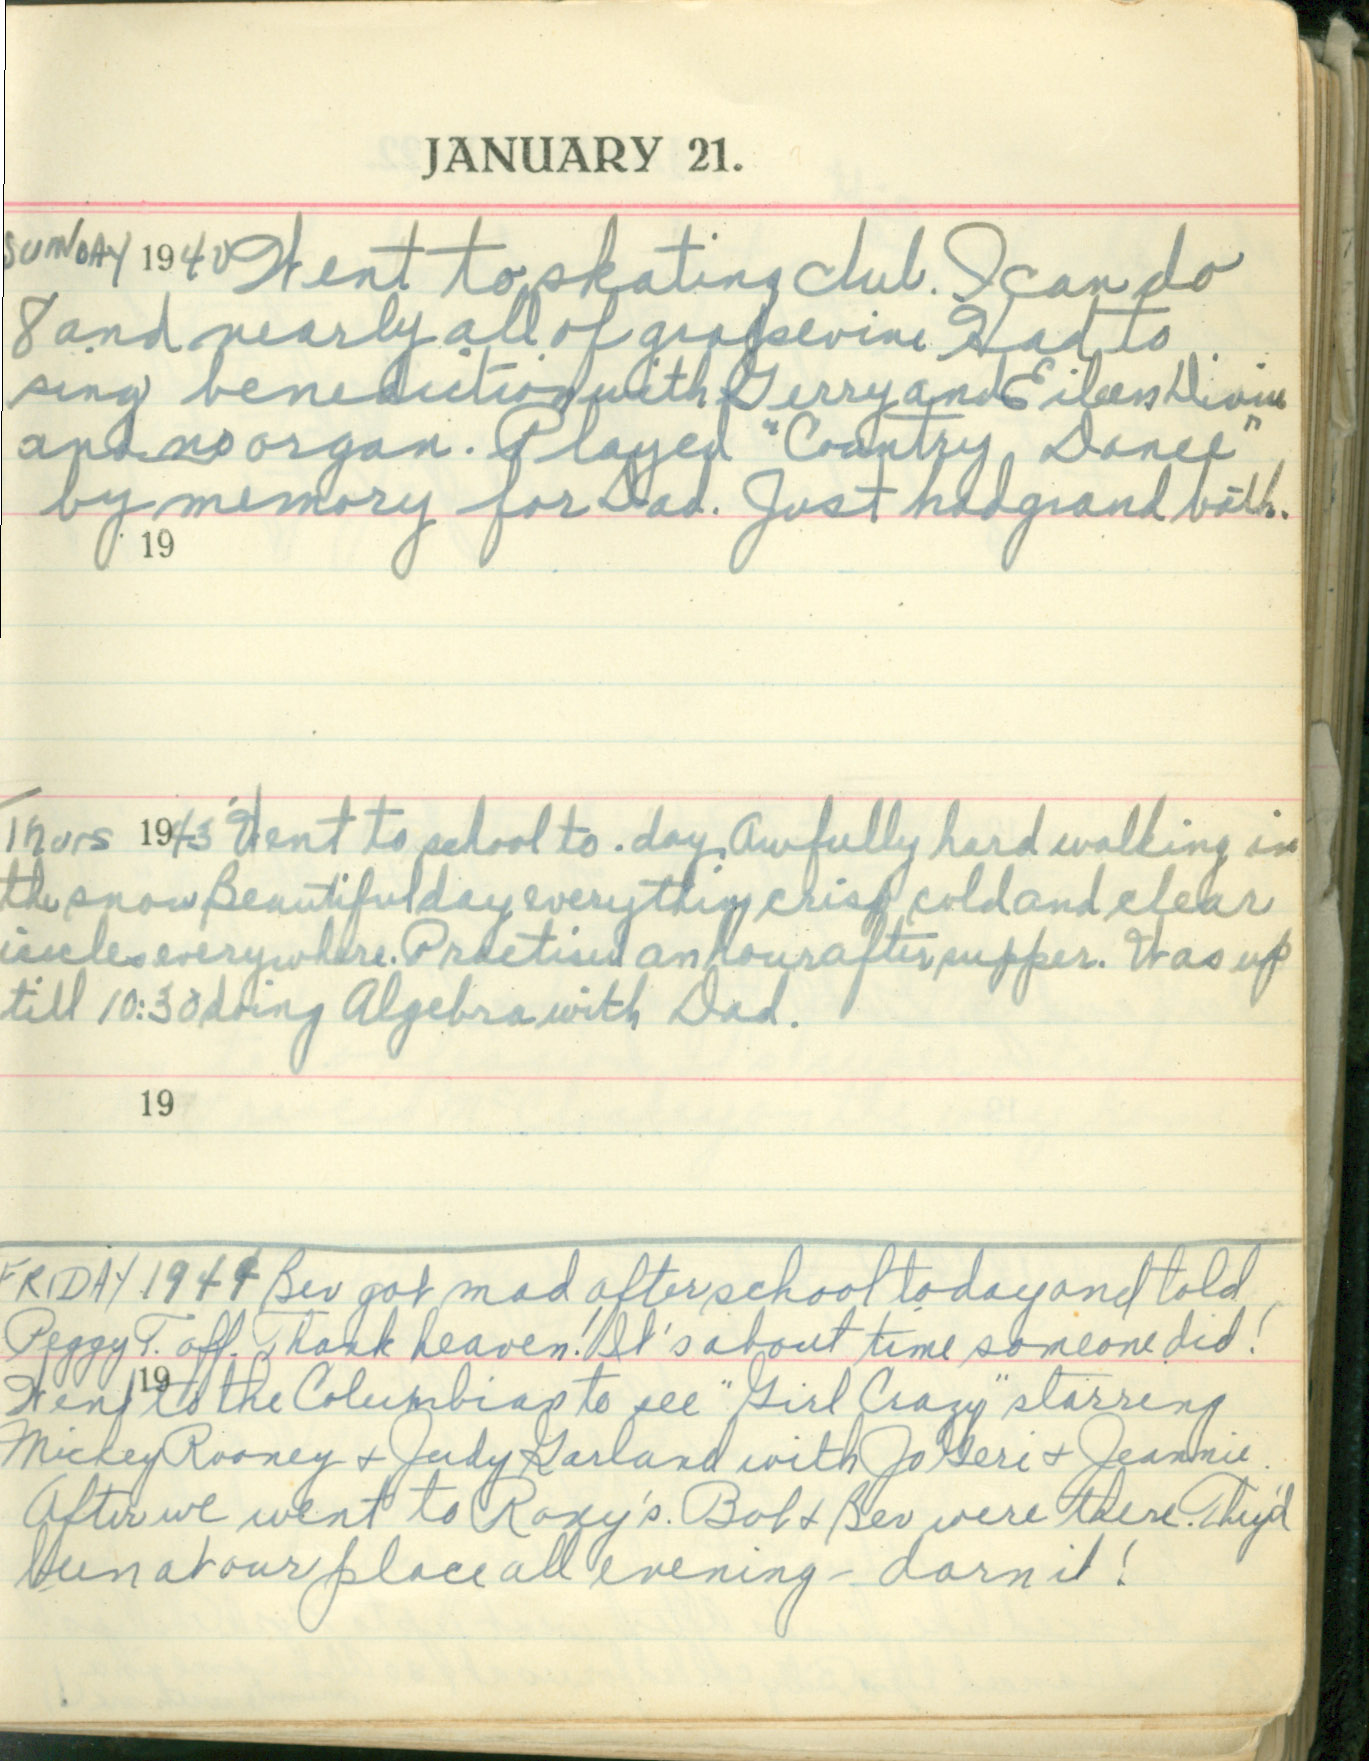 JANUARY 21.
SUNDAY 1940 Went to skating club. I can do
8 and nearly all of grapevine Had to
sing benediction with Gerry and Eileen Divine
and no organ. Played "Country Dance"
by memory for Dad. Just had grand bath.
19
Thurs 1943 Went to school to-day. Awfully hard walking in
the snow Beautiful day everything crisp cold and clear
icicles everywhere. Practised an hour after supper. Was up
till 10:30 doing Algebra with Dad.
19
FRIDAY 1944 Bev got mad after school today and told
Peggy T. off. Thank heaven! It's about time someone did!
19
Went to the Columbian to see "Girl Crazy" starring
Mickey Rooney + Judy Garland with Jo Geri + Jeannie.
After we went to Roxy's. Bob + Bev were there. They'd
been at our place all evening - darn it!